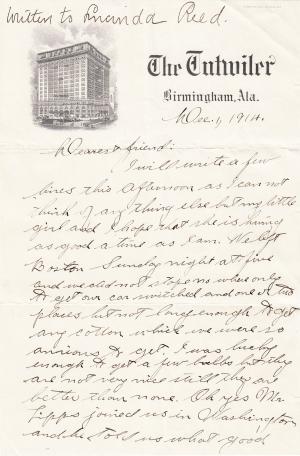 Written to Lucinda Reed.
The Tutwiler
Birmingham, Ala.
Dec. 1, 1914.
Dearest friend:
I will write a few
lines this afternoon as I can not
think of any thing else but my little
girl and I hope that she is having
as good a time as I am. We left
Boston Sunday night at five
and we did not stop no where only
to get our car switched and one or two
places but not long enough to get
any cotton which we were so
anxious to get. I was lucky
enough to get a few bulbs but they
are not very nice still they are
better than none. Oh yes Mr.
Lipps joined us in Washington
and he told us what good